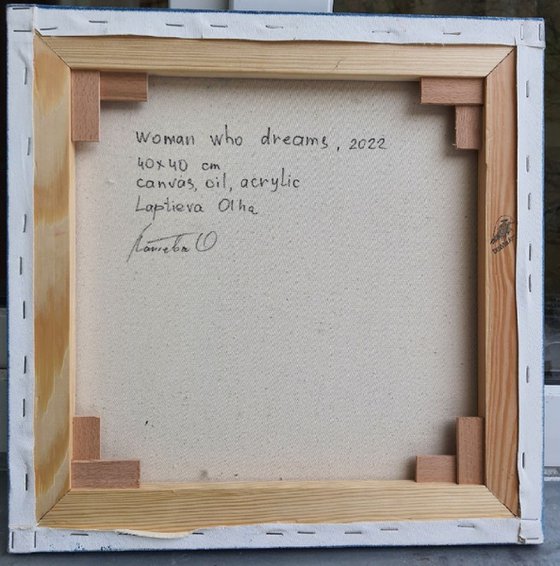 Woman who dreams, 2022
40x40 cm
canvas, oil, acrylic
Laptieva Olha
Лаптева О